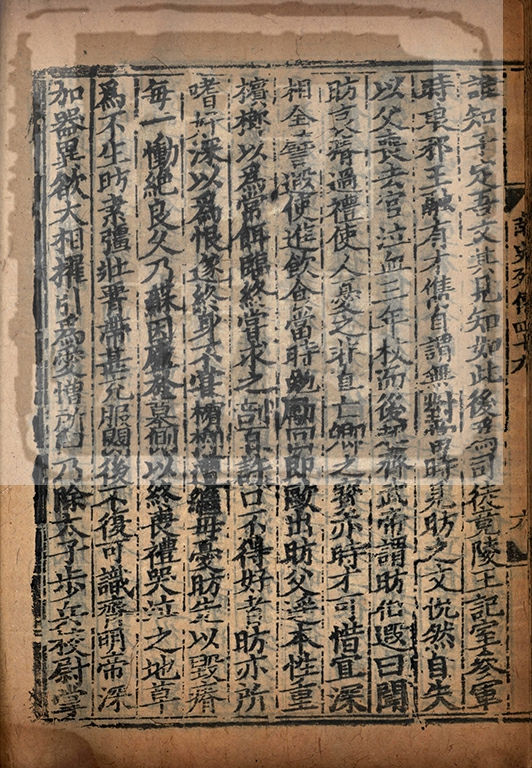 誰知子定吾文其見知如此後爲司徒竟陵王記室參軍
時琅邪王融有才儁自謂無對當時見昉之文怳然自失
以父喪去官泣血三年杖而後起齊武帝謂昉伯遐曰聞
昉哀瘠過禮使人憂之非直亡卿之寶亦時才可惜宜深
相全譬遐使進飲食當時勉勵回即歐出昉父遥本性重
檳榔以爲常餌臨終嘗求之剖百許口不得好者昉亦所
嗜好深以爲恨遂終身不甞檳榔遭繼母憂昉先以毀瘠
每一慟絶良久乃蘇因廬於墓側以終喪禮哭泣之地草
爲不生昉素彊壯署帶甚充服闋後不復可識齊明帝深
加器異欲大相擢引爲愛憎所白乃除太子步兵校尉掌